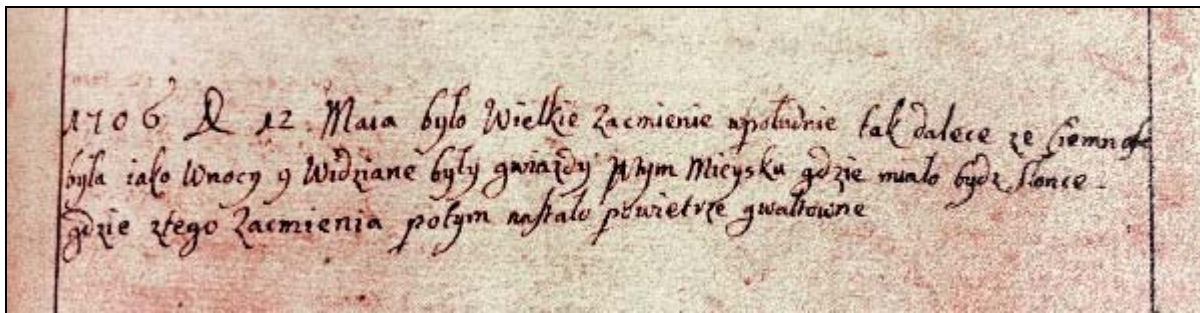 1706 D 12 Maia było Wielkie Zacmienie wpołudnie tak dalece ze Ciemność
była iako Wnocy y Widziane były gwiazdy Wtym Mieysku gdzie miało bydz słonce
gdzie ztego Zacmienia potym nastało powietrze gwałtowne